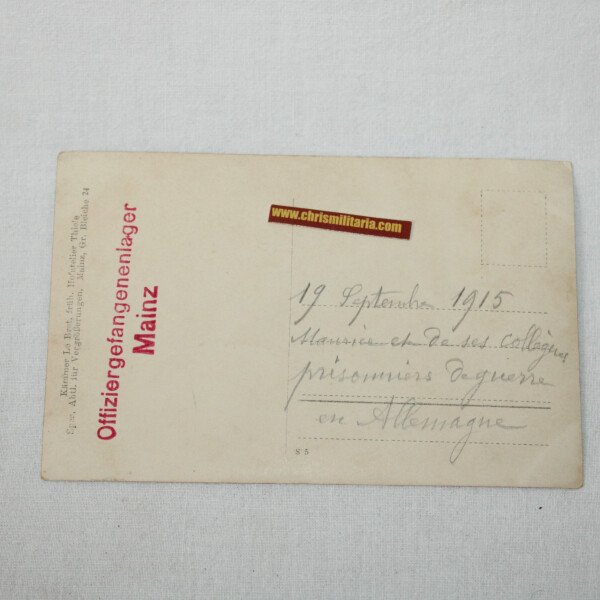 Künstner La Brut, früh. Hofatelier Thiele
Spez. Abtl. für Vergrößerungen, Mainz, Gr. Bleiche 24
Offiziergefangenenlager
Mainz
www.chrismilitaria.com
19 Septembre 1915
Maurice et de ses collègues
prisonniers de guerre
en Allemagne
S 5